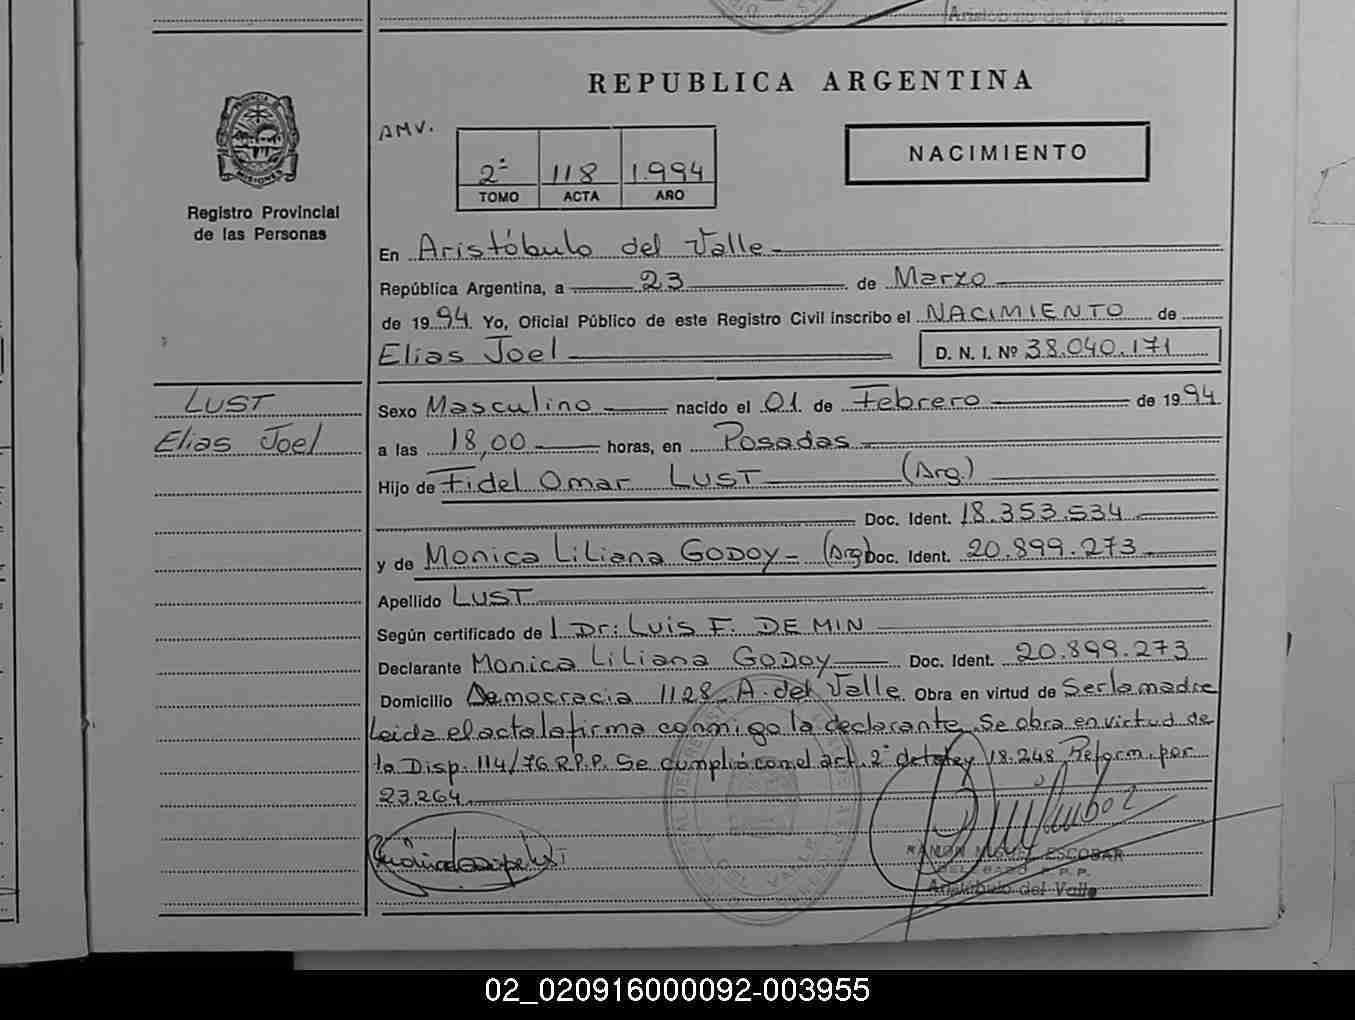 Aristóbulo del Valle
REPUBLICA ARGENTINA
AMV.
2º 118 1.994
TOMO ACTA AÑO
NACIMIENTO
PROVINCIA DE
MISIONES
Registro Provincial
de las Personas
En Aristóbulo del Valle
República Argentina, a 23 de Marzo
de 1994 Yo, Oficial Público de este Registro Civil inscribo el NACIMIENTO de
Elias Joel D. N. I. Nº 38.040.171
LUST
Elias Joel
Sexo Masculino nacido el 01 de Febrero de 1994
a las 18,00 horas, en Posadas
Hijo de Fidel Omar LUST (Arg.)
Doc. Ident. 18.353.534
y de Monica Liliana GODOY (Arg) Doc. Ident. 20.899.273
Apellido LUST
Según certificado de l Dr: Luis F. DE MIN
Declarante Monica Liliana GODOY Doc. Ident. 20.899.273
Domicilio Democracia 1128 A. del Valle. Obra en virtud de Ser la madre
Leida el acta la firma conmigo la declarante. Se obra en virtud de
la Disp. 114/76 R.P.P. Se cumplió con el art. 2º de la ley 18.248 Reform. por
23.264
RAMON MIGUEL ESCOBAR
DELEGADO R.P.P.
Aristóbulo del Valle
02_020916000092-003955